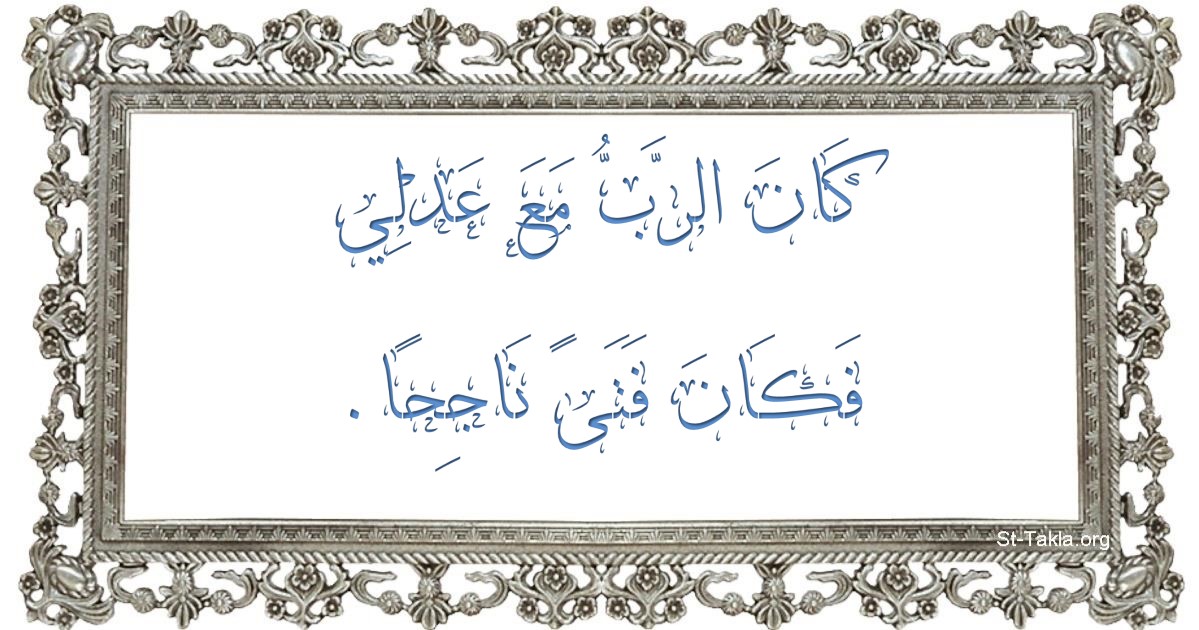 كَانَ الرَّبُّ مَعَ عَدْلِي
فَكَانَ فَتَىً نَاجِحًا .
St-Takla.org